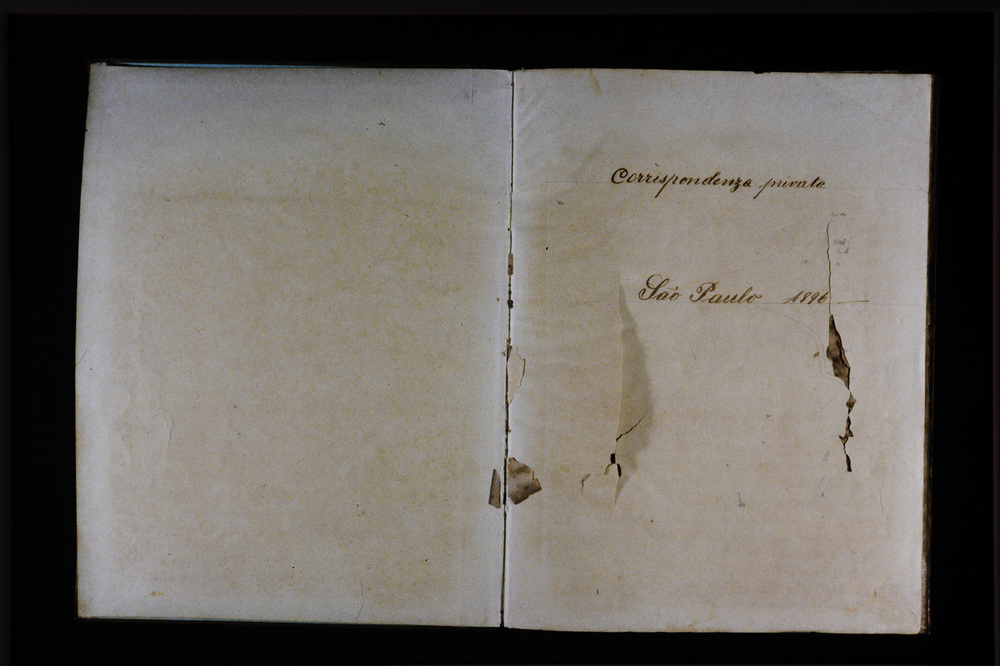 Corrispondenza privata
São Paulo 1896